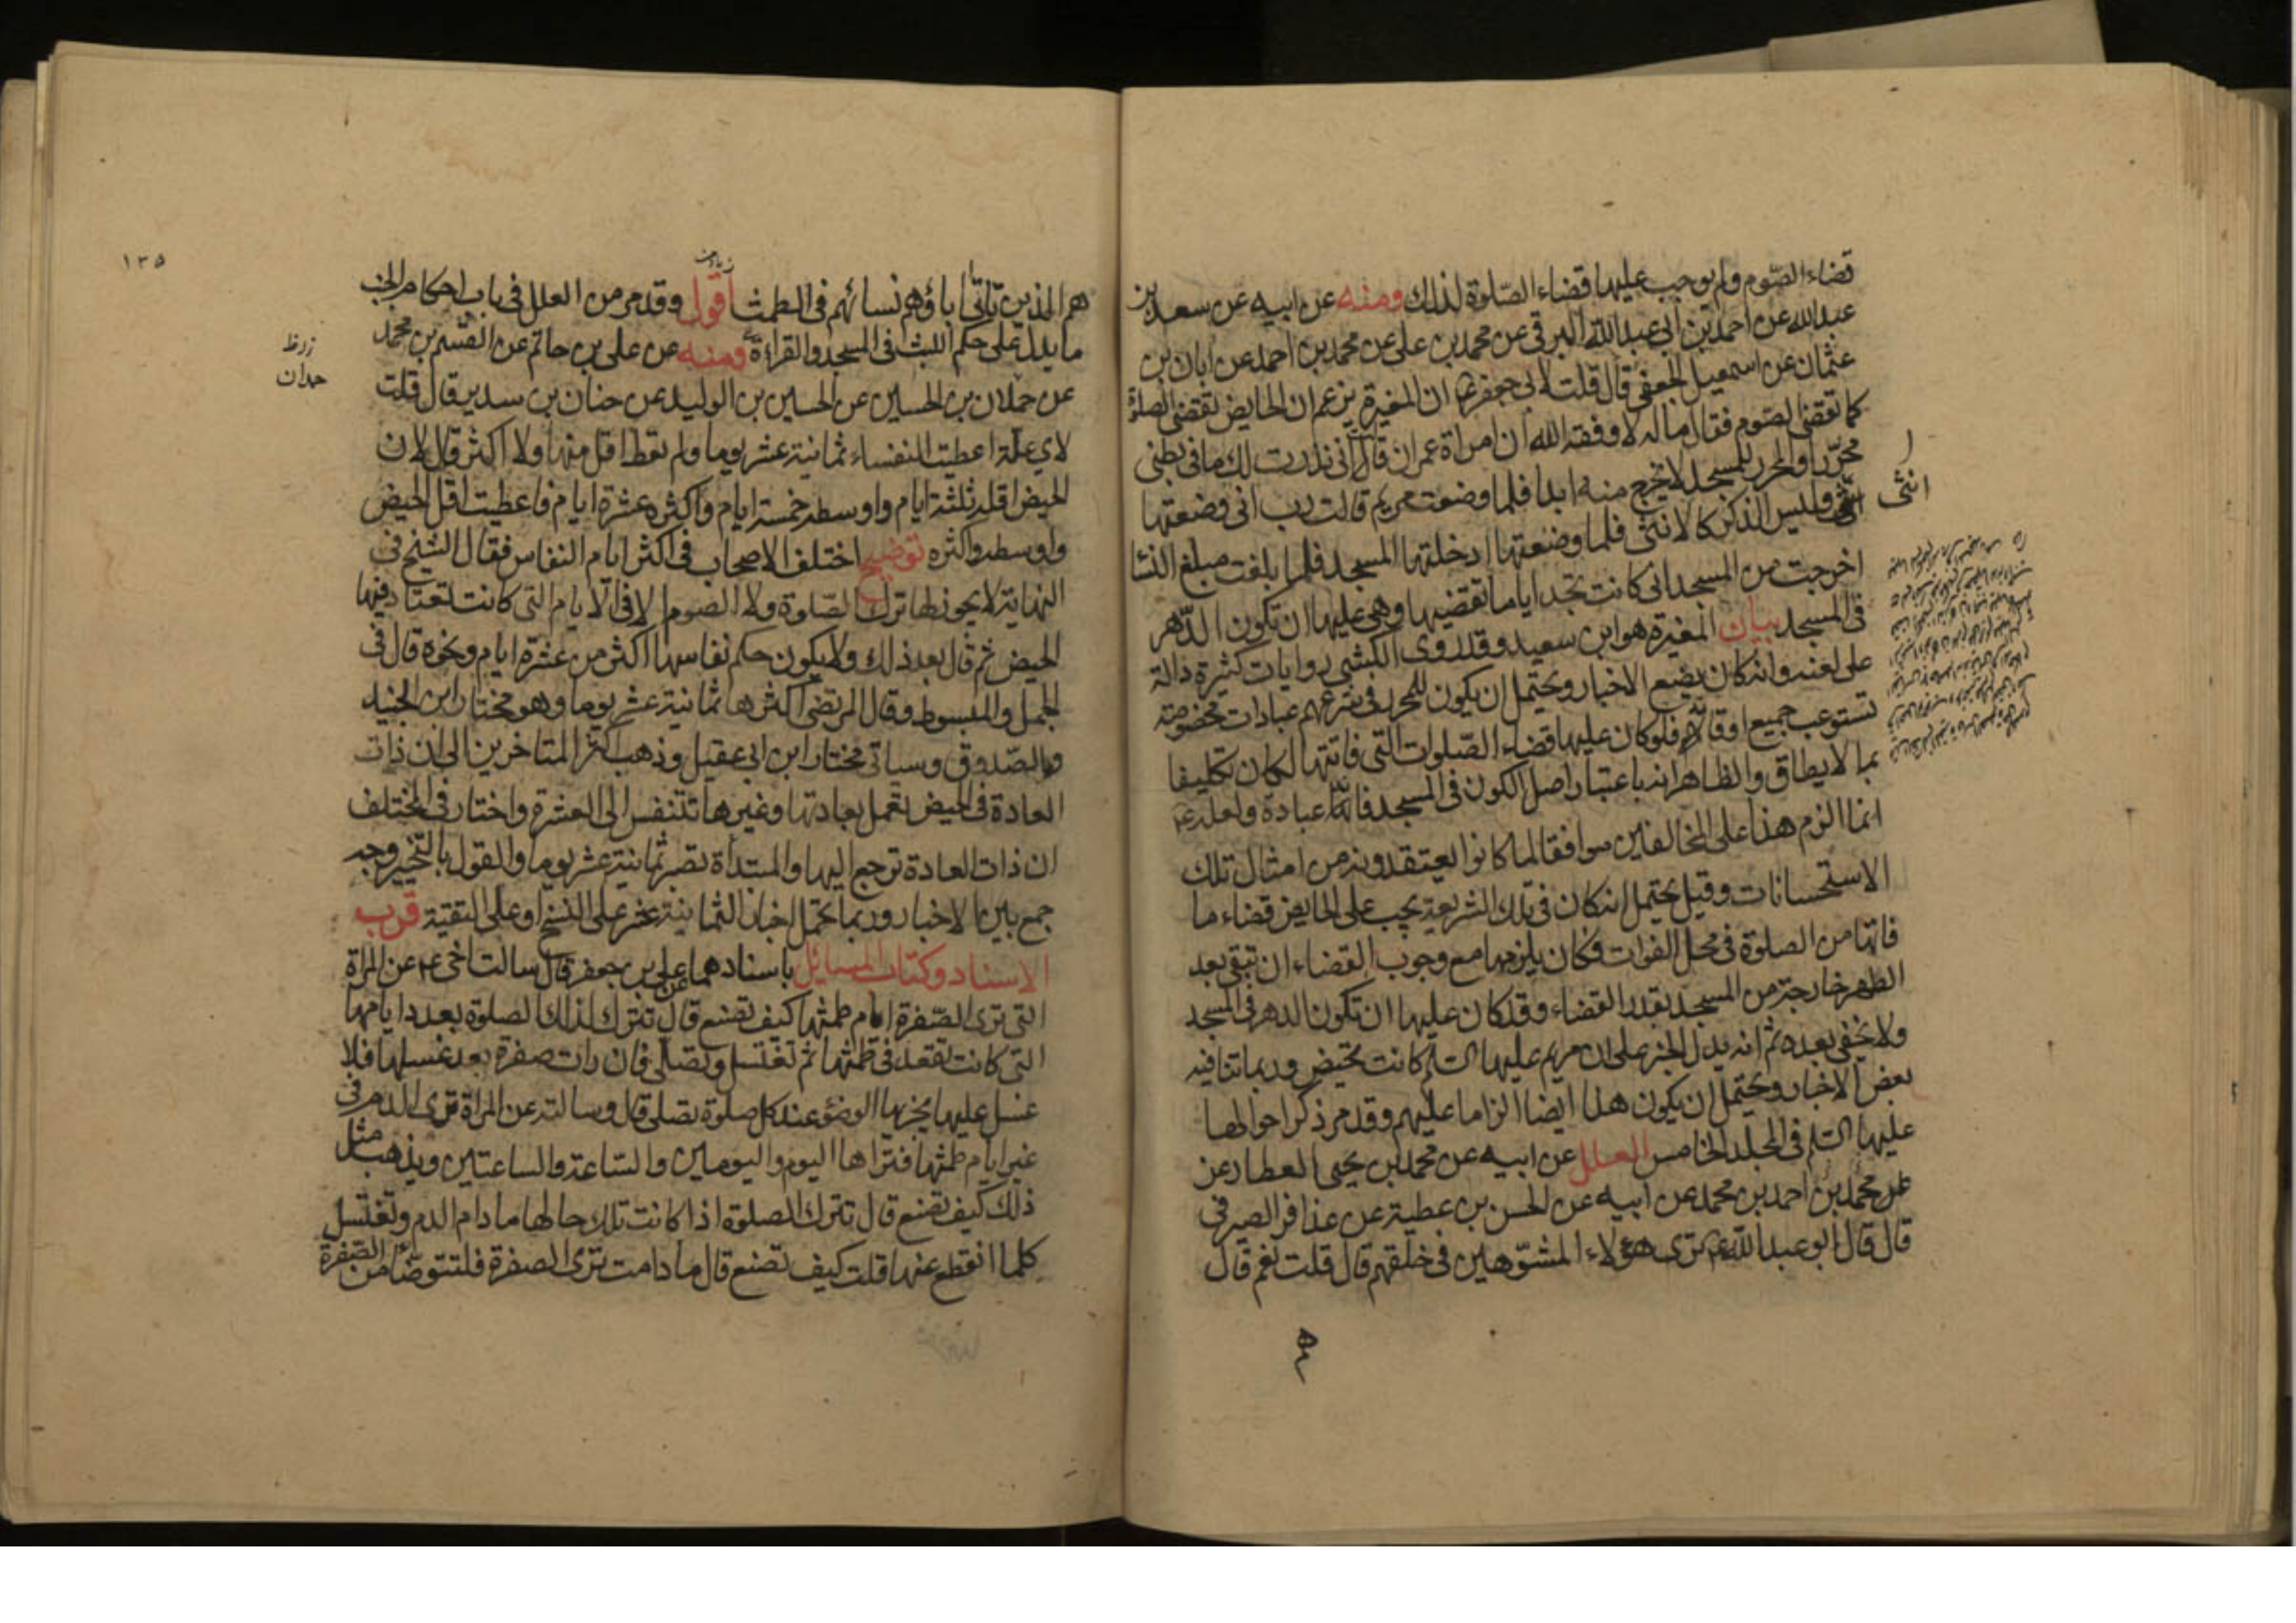 قضاء الصّوم ولم يوجب عليها قضاء الصّلوة لذلك ومنه عن ابيه عن سعد بن
عبدالله عن احمد بن ابى عبدالله البرقى عن محمد بن على عن محمد بن احمد عن ابان بن
عثمان عن اسمعيل الجعفى قال قلت لابى جعفر ع ان المغيرة يزعم ان الحايض تقضى الصلوة
كما تقضى الصّوم فقال ماله لا وفقه الله ان امراة عمران قالت انى نذرت لك ما فى بطنى
محرّرا والمحرر للمسجد لا يخرج منه ابدا فلما وضعت مريم قالت رب انى وضعتها
انثى وليس الذكر كالانثى فلما وضعتها ادخلتها المسجد فلما بلغت مبلغ النسا
اخرجت من المسجد انى كانت تجد اياما تقضيها وهى عليها ان تكون الدّهر
فى المسجد بيان المغيرة هو ابن سعيد وقد روى الكشى روايات كثيرة دالة
على لعنه وانه كان يضع الاخبار ويحتمل ان يكون للمحرر فى شرعهم عبادات مخصوصة
تستوعب جميع اوقاتهم فلو كان عليها قضاء الصّلوات التى فاتتها لكان تكليفا
بما لا يطاق والظاهر انه باعتبار اصل الكون فى المسجد فانه عبادة ولعله ع
انما الزم هذا على المخالفين موافقا لما كانوا يعتقدونه من امثال تلك
الاستحسانات وقيل يحتمل انه كان فى تلك الشريعة يجب على الحايض قضاء ما
فاتها من الصلوة فى محل الفوات فكان يلزمها مع وجوب القضاء ان تبقى بعد
الطهر خارجة من المسجد بقدر القضاء وقد كان عليها ان تكون الدهر فى المسجد
ولا يخفى بعده ثم انه يدل الخبر على ان مريم عليها السّلم كانت تحيض وربما تنافيه
بعض الاخبار ويحتمل ان يكون هذا ايضا الزاما عليهم وقد مر ذكر احوالها
عليها السّلم فى المجلد الخامس العلل عن ابيه عن محمد بن يحيى العطار عن
محمد بن احمد بن محمد عن ابيه عن الحسن بن عطية عن عذافر الصيرفى
قال قال ابو عبدالله ع ترى هؤلاء المشوّهين فى خلقهم قال قلت نعم قال
هم
انثى
١٣٥
هم الذين تاتى اباؤهم نسائهم فى الطمث اقول وقد مر من العلل فى باب احكام الجنب
ما يدل على حكم اللبث فى المسجد والقراءة ومنه عن على بن حاتم عن القسم بن محمد
عن حملان بن الحسين عن الحسين بن الوليد عن حنان بن سدير قال قلت
لاى علّة اعطيت النفساء ثمانية عشر يوما ولم تعط اقل منها ولا اكثر قال لان
الحيض اقله ثلثة ايام واوسطه خمسة ايام واكثره عشرة ايام فاعطيت اقل الحيض
واوسطه واكثره توضيح اختلف الاصحاب فى اكثر ايام النفاس فقال الشيخ فى
النهاية لا يجوز لها ترك الصّلوة ولا الصّوم الا فى الايام التى كانت تعتاد فيها
الحيض ثم قال بعد ذلك ولا يكون حكم نفاسها اكثر من عشرة ايام ونحوه قال فى
الجمل والمبسوط وقال المرتضى اكثرها ثمانية عشر يوما وهو مختار ابن الجنيد
والصّدوق وسياتى مختار ابن ابى عقيل وذهب اكثر المتاخرين الى ان ذات
العادة فى الحيض تعمل بعادتها وغيرها تتنفس الى العشرة واختار فى المختلف
ان ذات العادة ترجع اليها والمبتدأة تصبر ثمانية عشر يوما والقول بالتخيير وجه
جمع بين الاخبار وربما يحمل اخبار الثمانية عشر على النسخ او على التقية قرب
الاسناد وكتاب المسائل باسنادهما عن على بن جعفر قال سالت اخى ع عن المراة
التى ترى الصّفرة ايام طمثها كيف تصنع قال تترك لذلك الصلوة بعدد ايامها
التى كانت تقعد فى طمثها ثم تغتسل وتصلى فان رات صفرة بعد غسلها فلا
غسل عليها يجزيها الوضؤ عند كل صلوة تصلى قال وسالته عن المراة ترى الدم فى
غير ايام طمثها فتراها اليوم واليومين والسّاعة والساعتين ويذهب مثل
ذلك كيف تصنع قال تترك الصلوة اذا كانت تلك حالها ما دام الدم وتغتسل
كلما انقطع عنها قلت كيف تصنع قال ما دامت ترى الصفرة فلتتوضّا من الصّفرة
حمدان